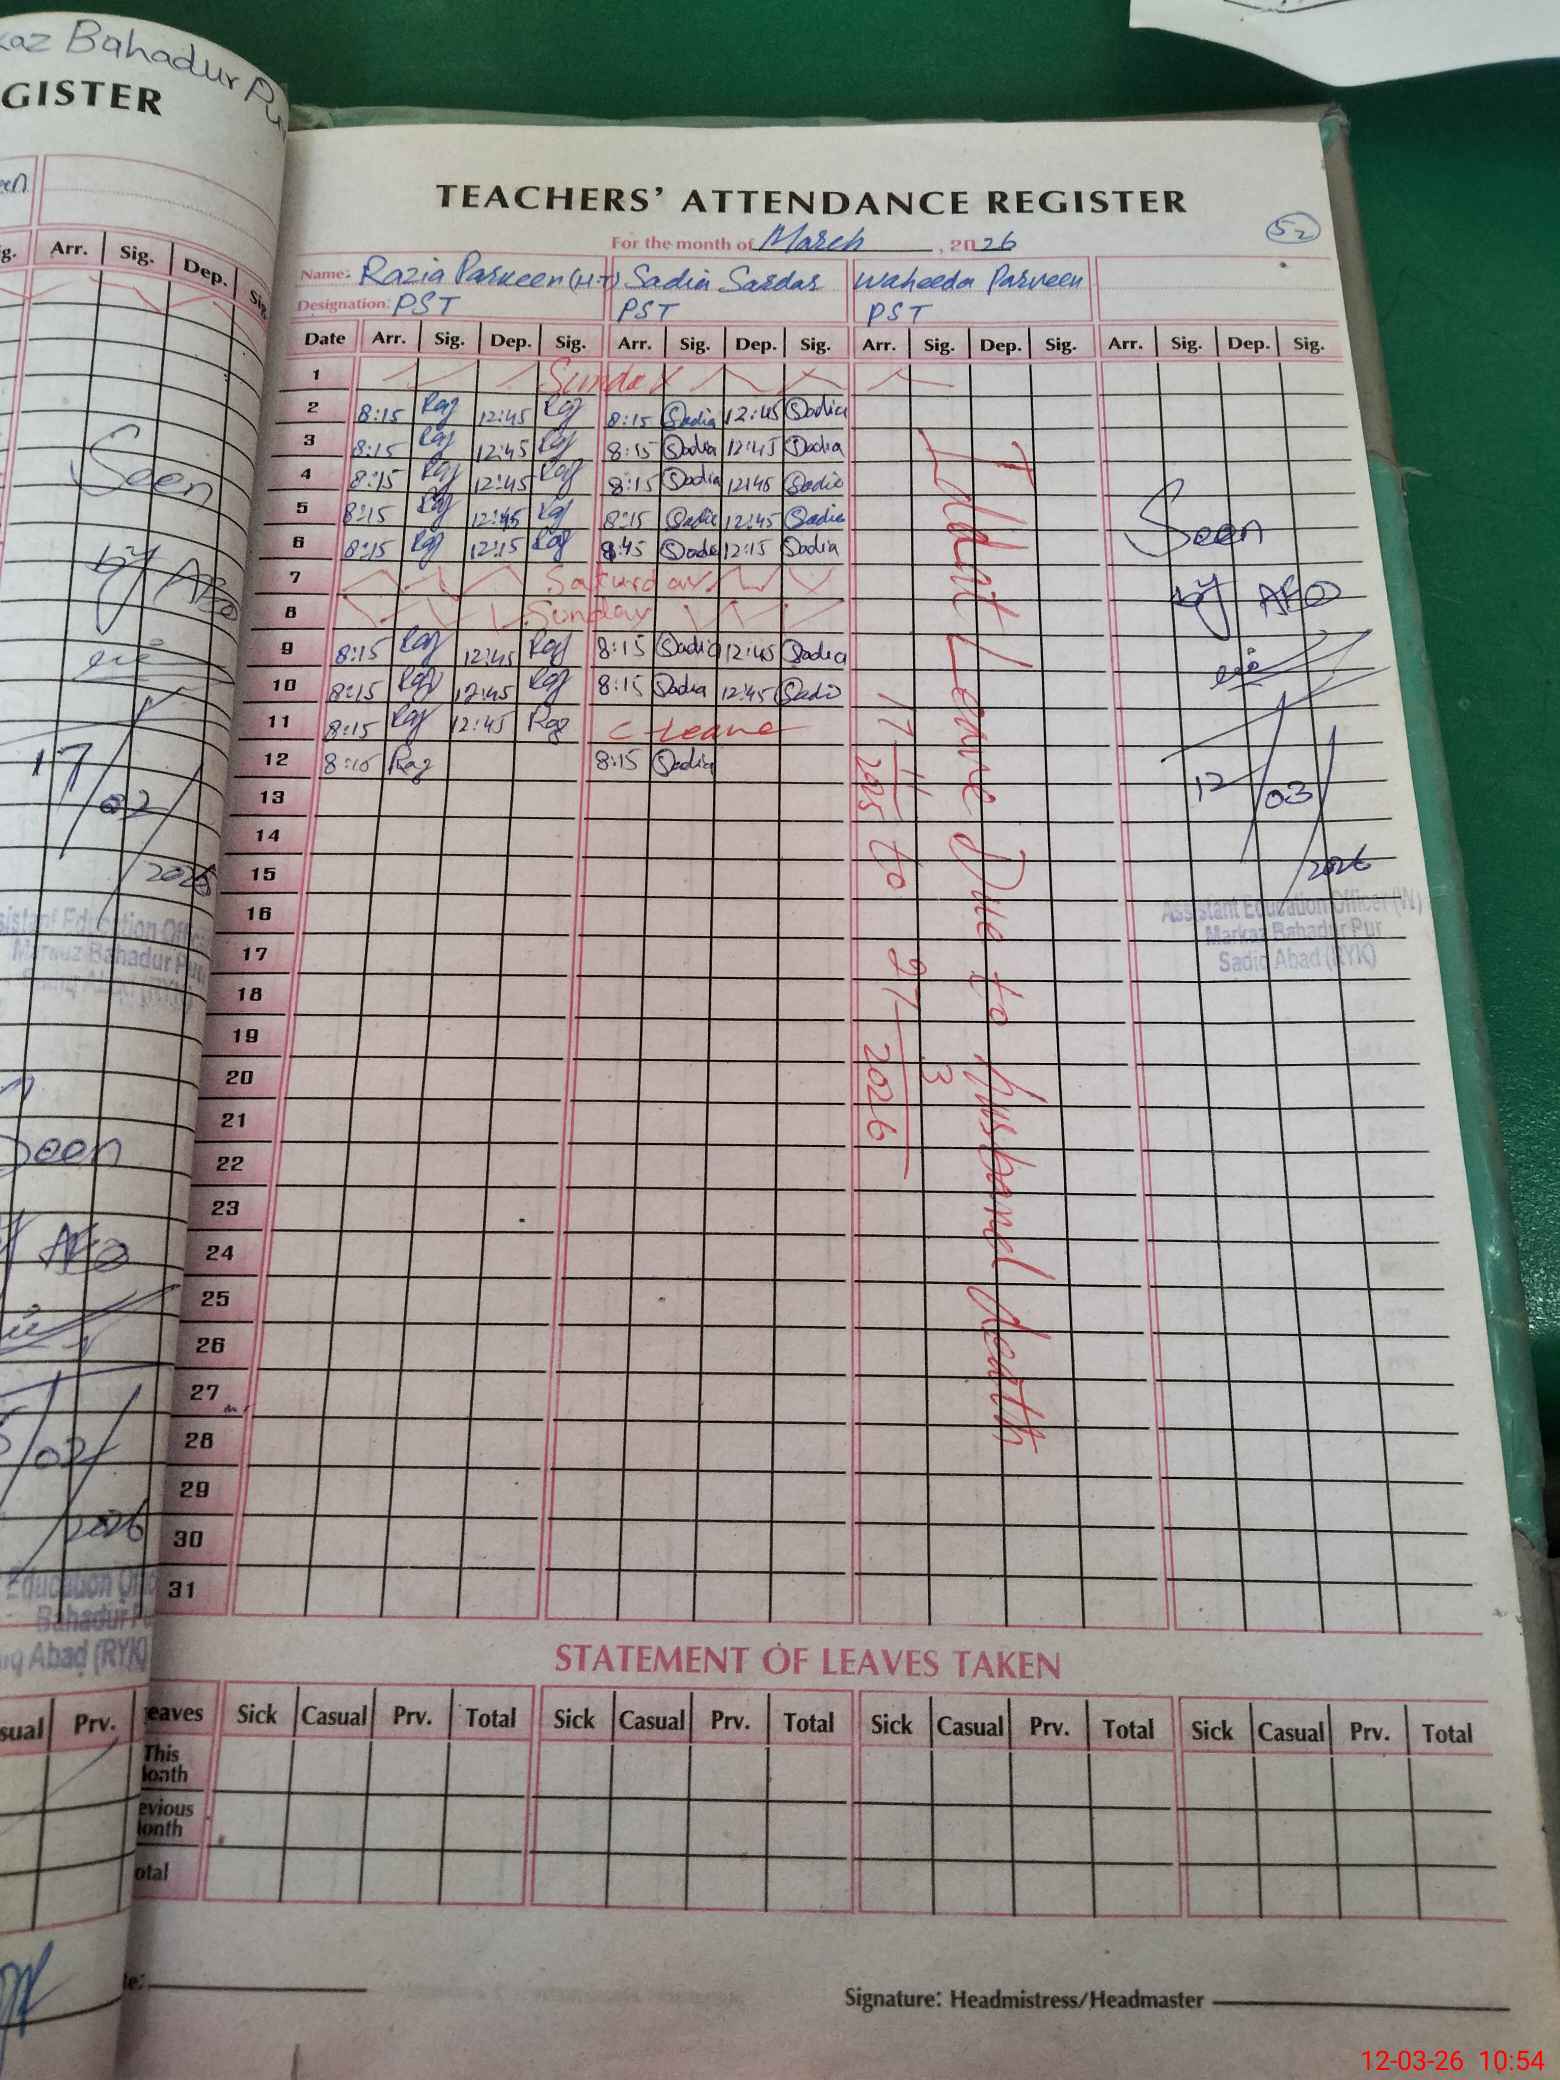 kaz Bahadur Pur
GISTER
TEACHERS' ATTENDANCE REGISTER
For the month of March , 2026
52
Name: Razia Parveen (H.T) Sadia Sardar Waheeda Parveen
Designation: PST PST PST
Date Arr. Sig. Dep. Sig. Arr. Sig. Dep. Sig. Arr. Sig. Dep. Sig. Arr. Sig. Dep. Sig.
1 Sunday
2 8:15 Raz 12:45 Raz 8:15 Sadia 12:45 Sadia
3 8:15 Raz 12:45 Raz 8:15 Sadia 12:45 Sadia
4 8:15 Raz 12:45 Raz 8:15 Sadia 12:45 Sadia
5 8:15 Raz 12:45 Raz 8:15 Sadia 12:45 Sadia
6 8:15 Raz 12:15 Raz 8:45 Sadia 12:15 Sadia
7 Saturday
8 Sunday
9 8:15 Raz 12:45 Raz 8:15 Sadia 12:45 Sadia
10 8:15 Raz 12:45 Raz 8:15 Sadia 12:45 Sadia
11 8:15 Raz 12:45 Raz C-Leave
12 8:10 Raz 8:15 Sadia
13
14
15
16
17
18
19
20
21
22
23
24
25
26
27
28
29
30
31
Iddat Leave Due to husband death
17-11-2025 to 27-3-2026
Seen
by AEO
12/03/2026
Assistant Education Officer (W)
Markaz Bahadur Pur
Sadiq Abad (RYK)
STATEMENT OF LEAVES TAKEN
eaves Sick Casual Prv. Total Sick Casual Prv. Total Sick Casual Prv. Total Sick Casual Prv. Total
This
onth
evious
onth
otal
Signature: Headmistress/Headmaster
een
g. Arr. Sig. Dep. Sig.
Seen
by AEO
17/02/2026
sistant Education Offic
Markaz Bahadur Pur
Seen
AEO
/02/2026
Education Offic
Bahadur Pu
iq Abad (RYK)
sual Prv.
12-03-26 10:54